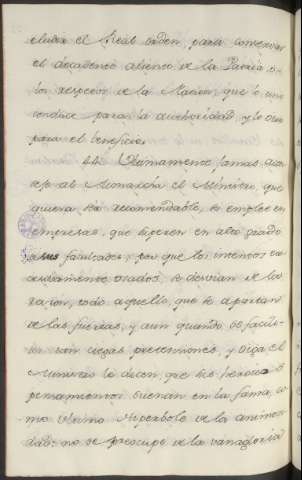 eludir el Real orden para conservar
el decadente aliento de la Patria o
los respectos de la Nacion, que lo uno
conduce para la authoridad y lo otro
para el beneficio.
44. Ultimamente jamas
deje al Monarcha el Ministro, que
quiera ser recomendable, se emplee en
empresas, que exceden en alto grado
a sus facultades; por que los intentos
osados, se desvian de la
razon, todo aquello, que se apartan
de las fuerzas, y aun quando se facili-
tan son ciegas pretensiones, y oiga el
Ministro le dicen, que los heroicos
pensamientos suenan en la fama, co-
mo ultimo Hiperbole de la animos-
dad: no se preocupe de la vanagloria